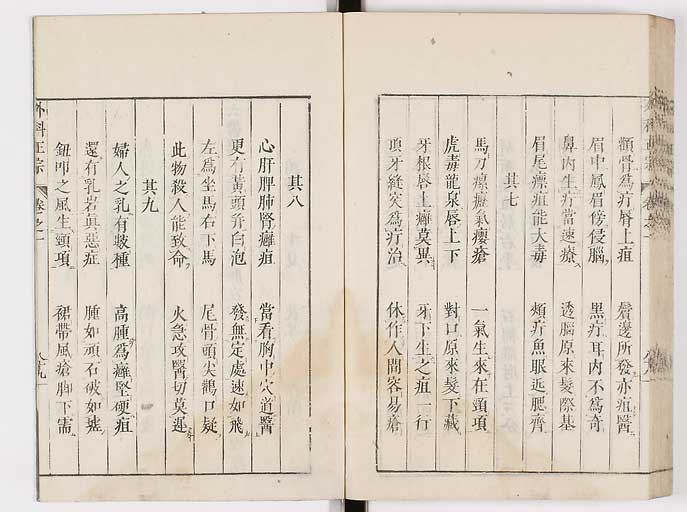 顴骨為疔脣上疽　鬢邊所發亦疽醫
眉中鳳眉傍侵腦　黑疔耳內不為奇
鼻內生疔當速療　透腦原來髮際基
眉尾瘭疽能大毒　頰疔魚眼近腮齊
其七
馬刀瘰癧氣癭瘡　一氣生來在頸項
虎毒龍泉唇上下　對口原來髮下藏
牙根唇上癰莫異　牙下生之疽一行
與牙縫突為疔治　休作人間容易瘡
其八
心肝脾肺腎癰疽　當看胸中穴道醫
更有黃頭并白泡　發無定處速如飛
左為坐馬右下馬　尾骨頭尖鸛口疑
此物殺人能致命　火急攻醫切莫遲
其九
婦人之乳有數種　高腫為癰堅硬疽
還有乳岩真惡症　腫如頑石破如墟
鈕叩之風生頸項　裙帶風瘡腳下需
外科正宗
卷之一
八九